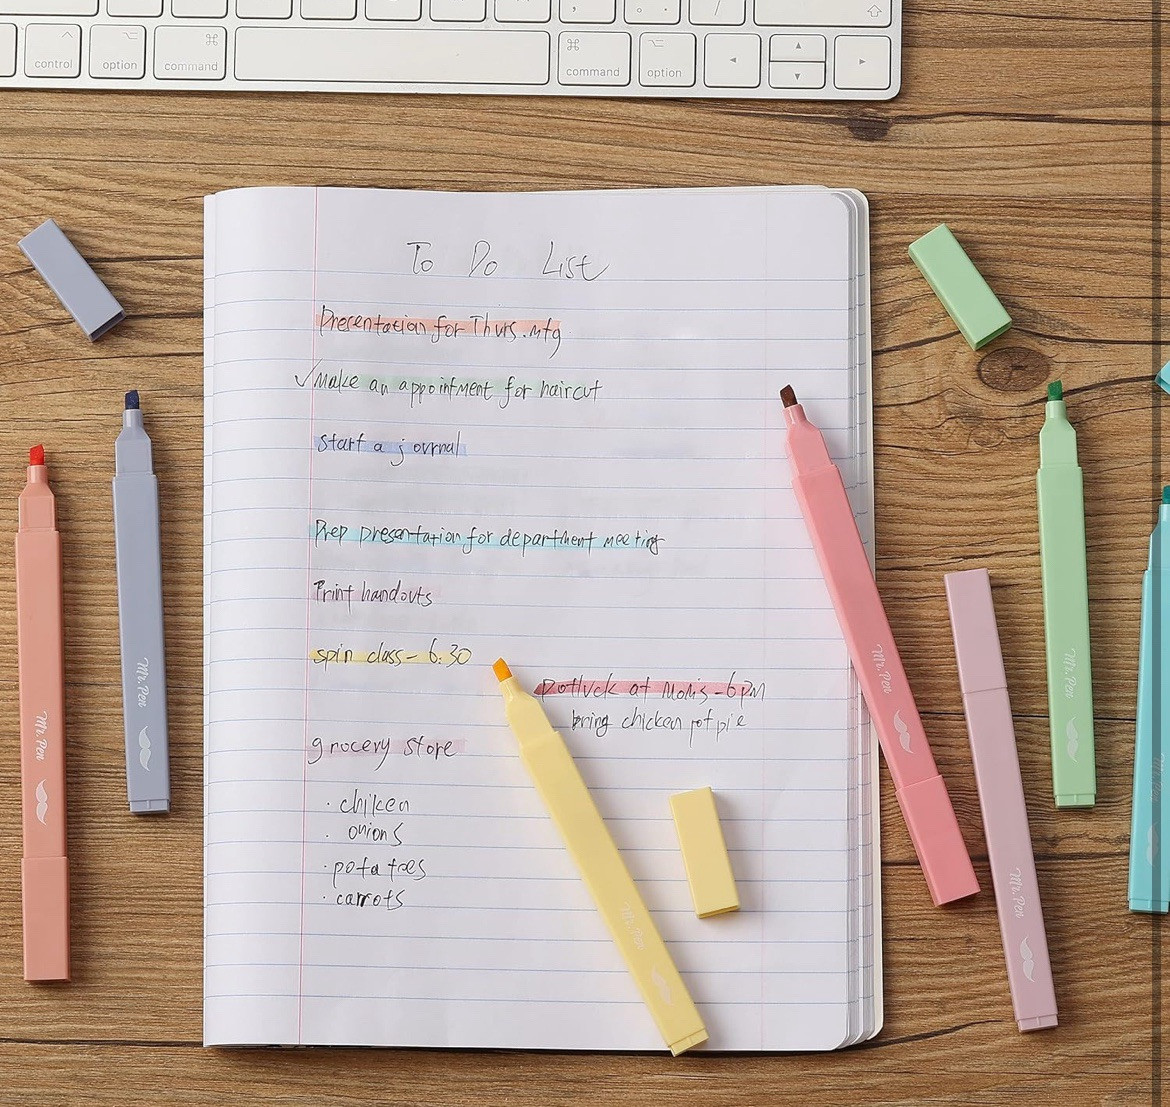 control
option
command
command
option
To Do List
Presentation for Thurs. mtg
✓Make an appointment for haircut
start a journal
Prep presentation for department meeting
Print handouts
spin class- 6:30
potluck at Mom's -6PM
bring chicken pot pie
grocery store
· chiken
· onions
· potatoes
· carrots
Mr. Pen
Mr. Pen
Mr. Pen
Mr. Pen
Mr. Pen
Mr. Pen